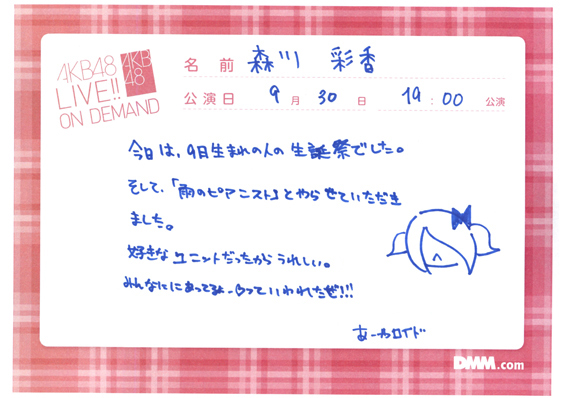 AKB48
LIVE!!
ON DEMAND
AKB
48
名前 森川 彩香
公演日 9月30日 19:00 公演
今日は、9日生まれの人の生誕祭でした。
そして、「雨のピアニスト」とやらせていただき
ました。
好きなユニットだったからうれしい。
みんなににあってるょー♡っていわれたぜ!!!
あーやロイド
DMM.com